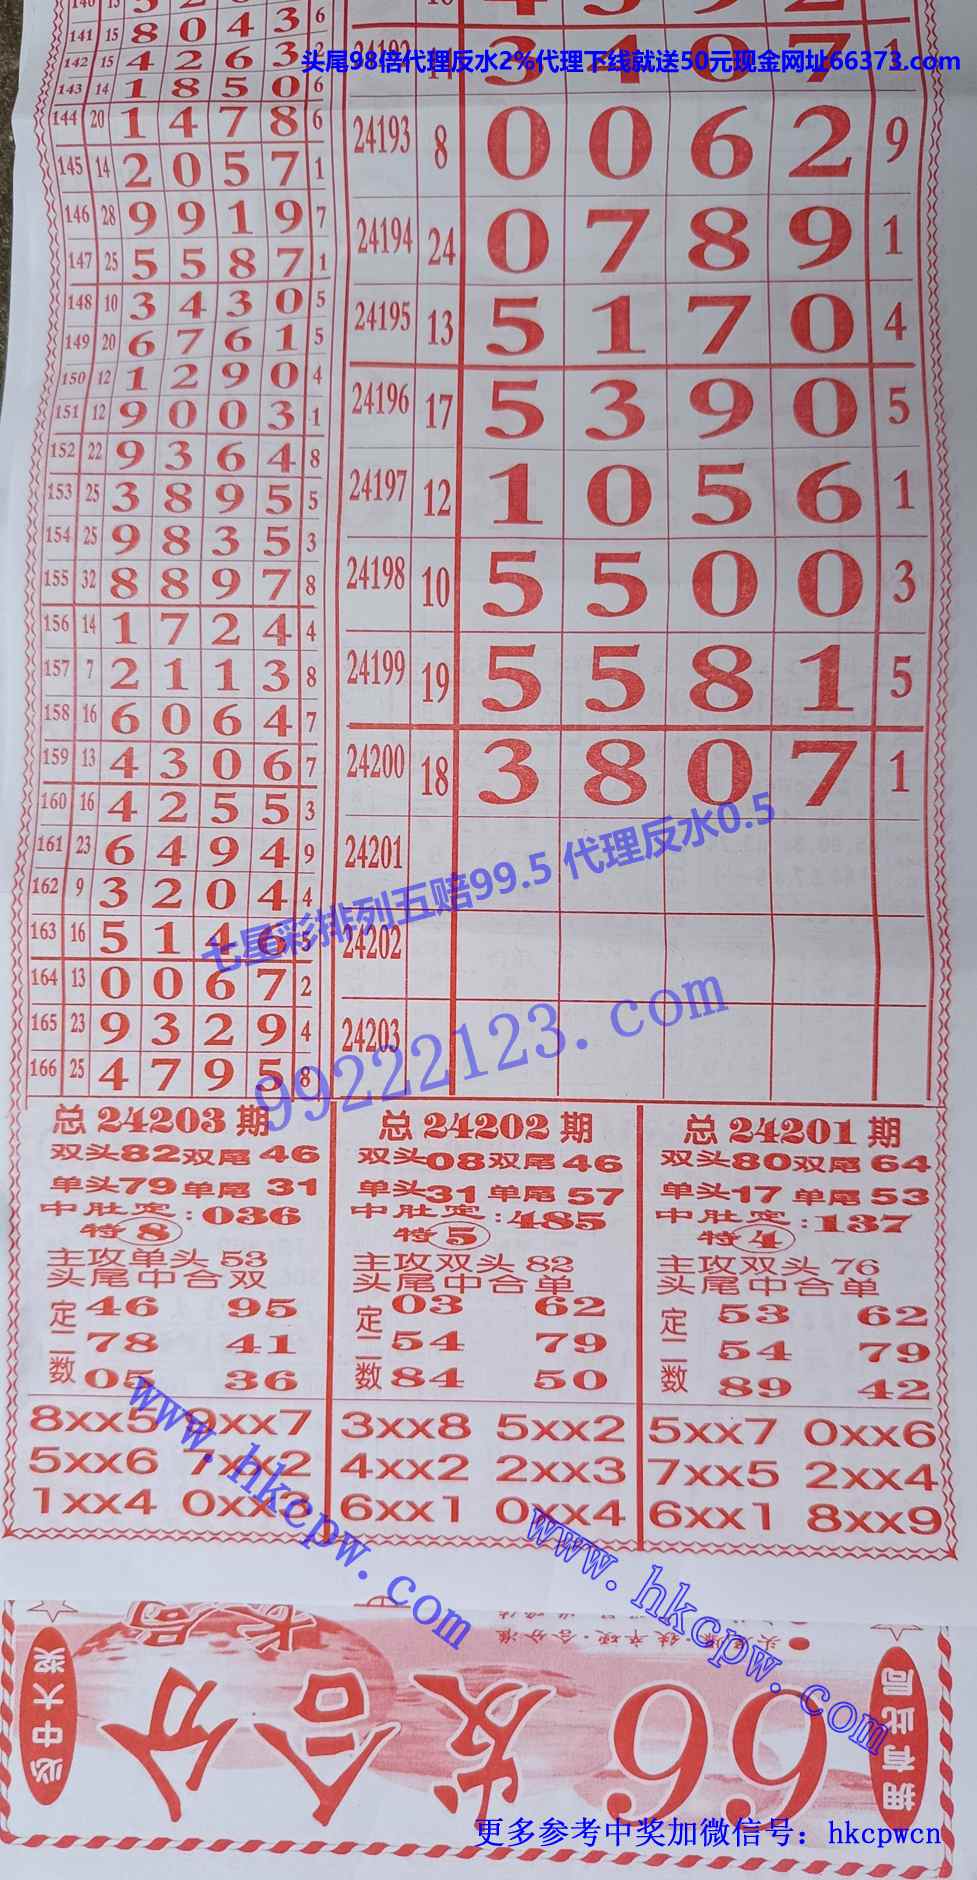 141 15 8 0 4 3 6
142 15 4 2 6 3 2
143 14 1 8 5 0 6
144 20 1 4 7 8 6
145 14 2 0 5 7 1
146 28 9 9 1 9 7
147 25 5 5 8 7 1
148 10 3 4 3 0 5
149 20 6 7 6 1 5
150 12 1 2 9 0 4
151 12 9 0 0 3 1
152 22 9 3 6 4 8
153 25 3 8 9 5 5
154 25 9 8 3 5 3
155 32 8 8 9 7 8
156 14 1 7 2 4 4
157 7 2 1 1 3 8
158 16 6 0 6 4 7
159 13 4 3 0 6 7
160 16 4 2 5 5 3
161 23 6 4 9 4 9
162 9 3 2 0 4 4
163 16 5 1 4 6 5
164 13 0 0 6 7 2
165 23 9 3 2 9 4
166 25 4 7 9 5 8
24192 3 4 0 7 1
头尾98倍代理反水2%代理下线就送50元现金网址66373.com
24193 8 0 0 6 2 9
24194 24 0 7 8 9 1
24195 13 5 1 7 0 4
24196 17 5 3 9 0 5
24197 12 1 0 5 6 1
24198 10 5 5 0 0 3
24199 19 5 5 8 1 5
24200 18 3 8 0 7 1
24201
24202
24203
七星彩排列五赔99.5 代理反水0.5
99222123.com
总24203期
双头82双尾46
单头79单尾31
中肚定:036
特8
主攻单头53
头尾中合双
定二数
46 95
78 41
05 36
8xx5 9xx7
5xx6 7xx2
1xx4 0xx3
总24202期
双头08双尾46
单头31单尾57
中肚定:485
特5
主攻双头82
头尾中合单
定二数
03 62
54 79
84 50
3xx8 5xx2
4xx2 2xx3
6xx1 0xx4
总24201期
双头80双尾64
单头17单尾53
中肚定:137
特4
主攻双头76
头尾中合单
定二数
53 62
54 79
89 42
5xx7 0xx6
7xx5 2xx4
6xx1 8xx9
www.hkcpw.com
www.hkcpw.com
拥有此局
66发合分
必中大奖
更多参考中奖加微信号：hkcpwcn